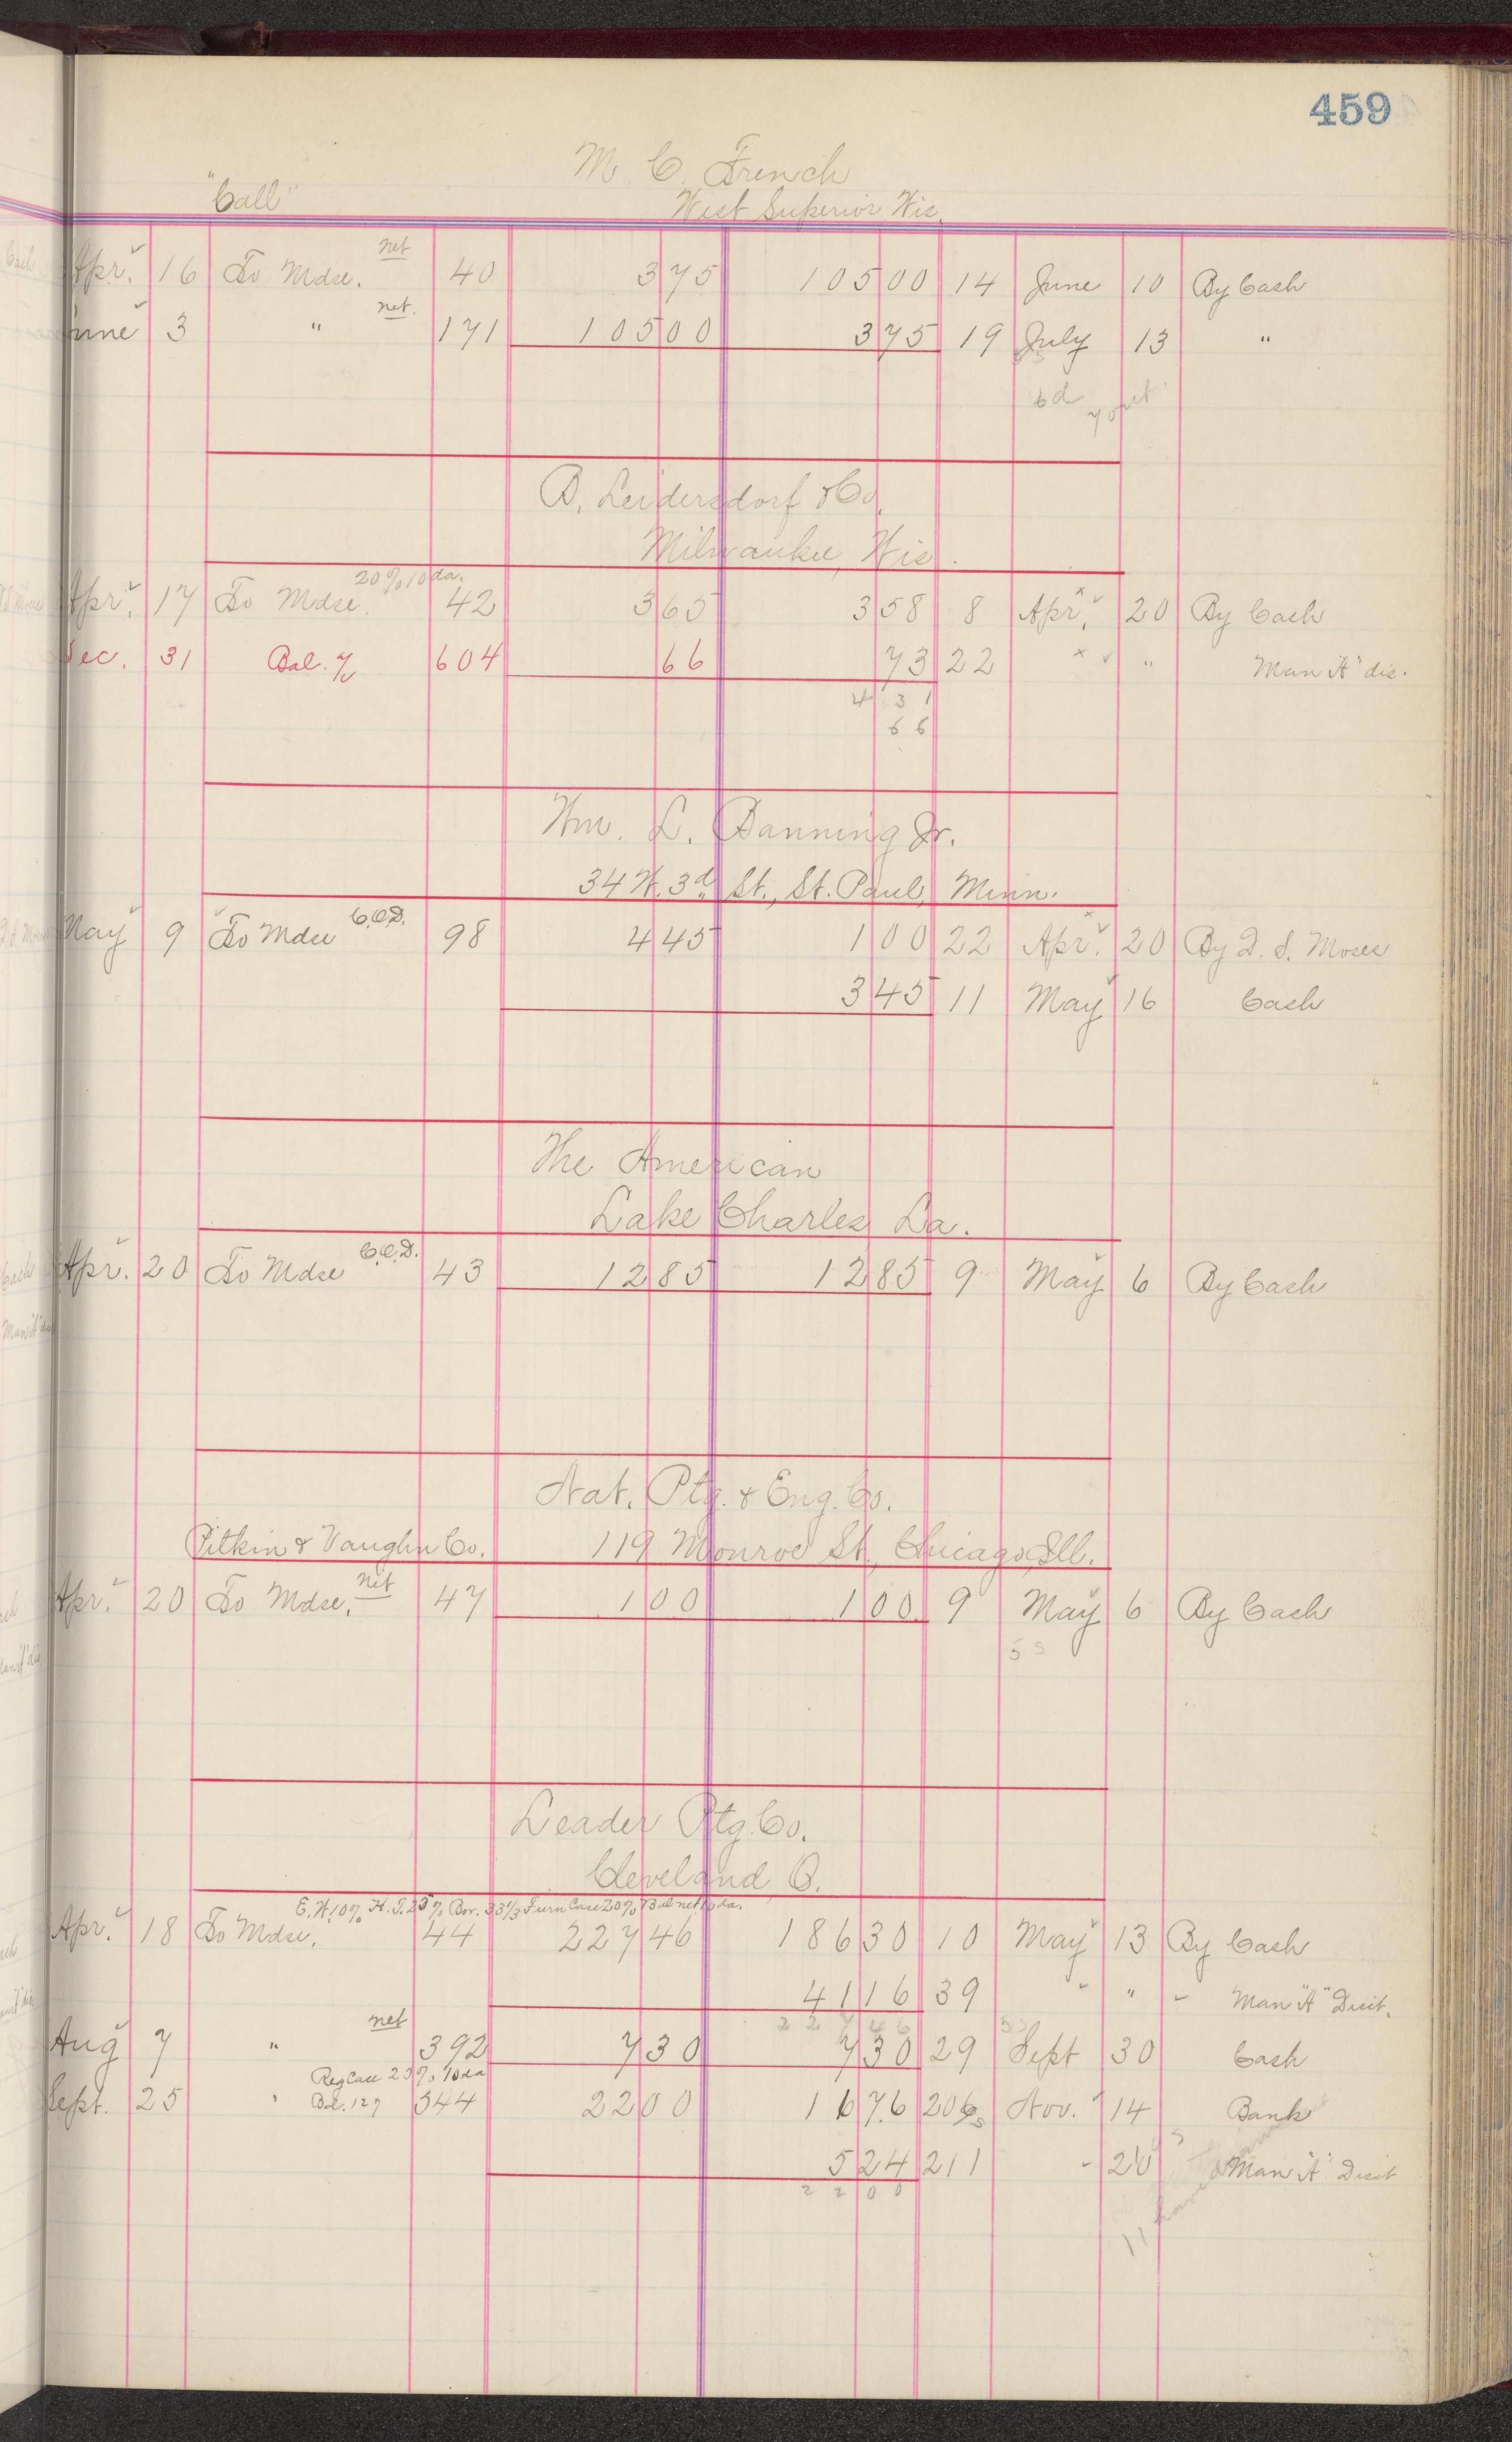 459
M. C. French
"Call"
West Superior Wis.
net
Apr. 16 To Mdse. 40 375 10500 14 June 10 By Cash
net.
June 3 " 171 10500 375 19 July 13 "
B. Leidersdorf & Co.
Milwaukee, Wis.
20% 10 da.
Apr. 17 To Mdse. 42 365 358 8 Apr. 20 By Cash
Dec. 31 Bal. % 604 66 73 22 " Man "A" dis.
4 31
66
Wm. L. Banning Jr.
34 W. 3d St., St. Paul, Minn.
C.O.D.
May 9 To Mdse 98 445 100 22 Apr. 20 By D. S. Moses
345 11 May 16 Cash
The American
Lake Charles La.
C.O.D.
Apr. 20 To Mdse 43 1285 1285 9 May 6 By Cash
Nat. Ptg. & Eng. Co.
Pitkin & Vaughn Co. 119 Monroe St., Chicago, Ill.
net
Apr. 20 To Mdse. 47 100 100 9 May 6 By Cash
53
Leader Ptg. Co.
Cleveland O.
E.W. 10% H.T. 25% Bor. 33 1/3 Furn Case 20% Bal net 10 da.
Apr. 18 To Mdse. 44 22746 18630 10 May 13 By Cash
4116 39 " " Man "A" Disct.
22746
net
Aug 7 " 392 730 730 29 Sept 30 Cash
Reg Case 25% 10 da
Sept. 25 " Bal. 127 544 2200 1676 206 Nov. 14 Bank
524 211 " 20 Man "A" Disct
2200